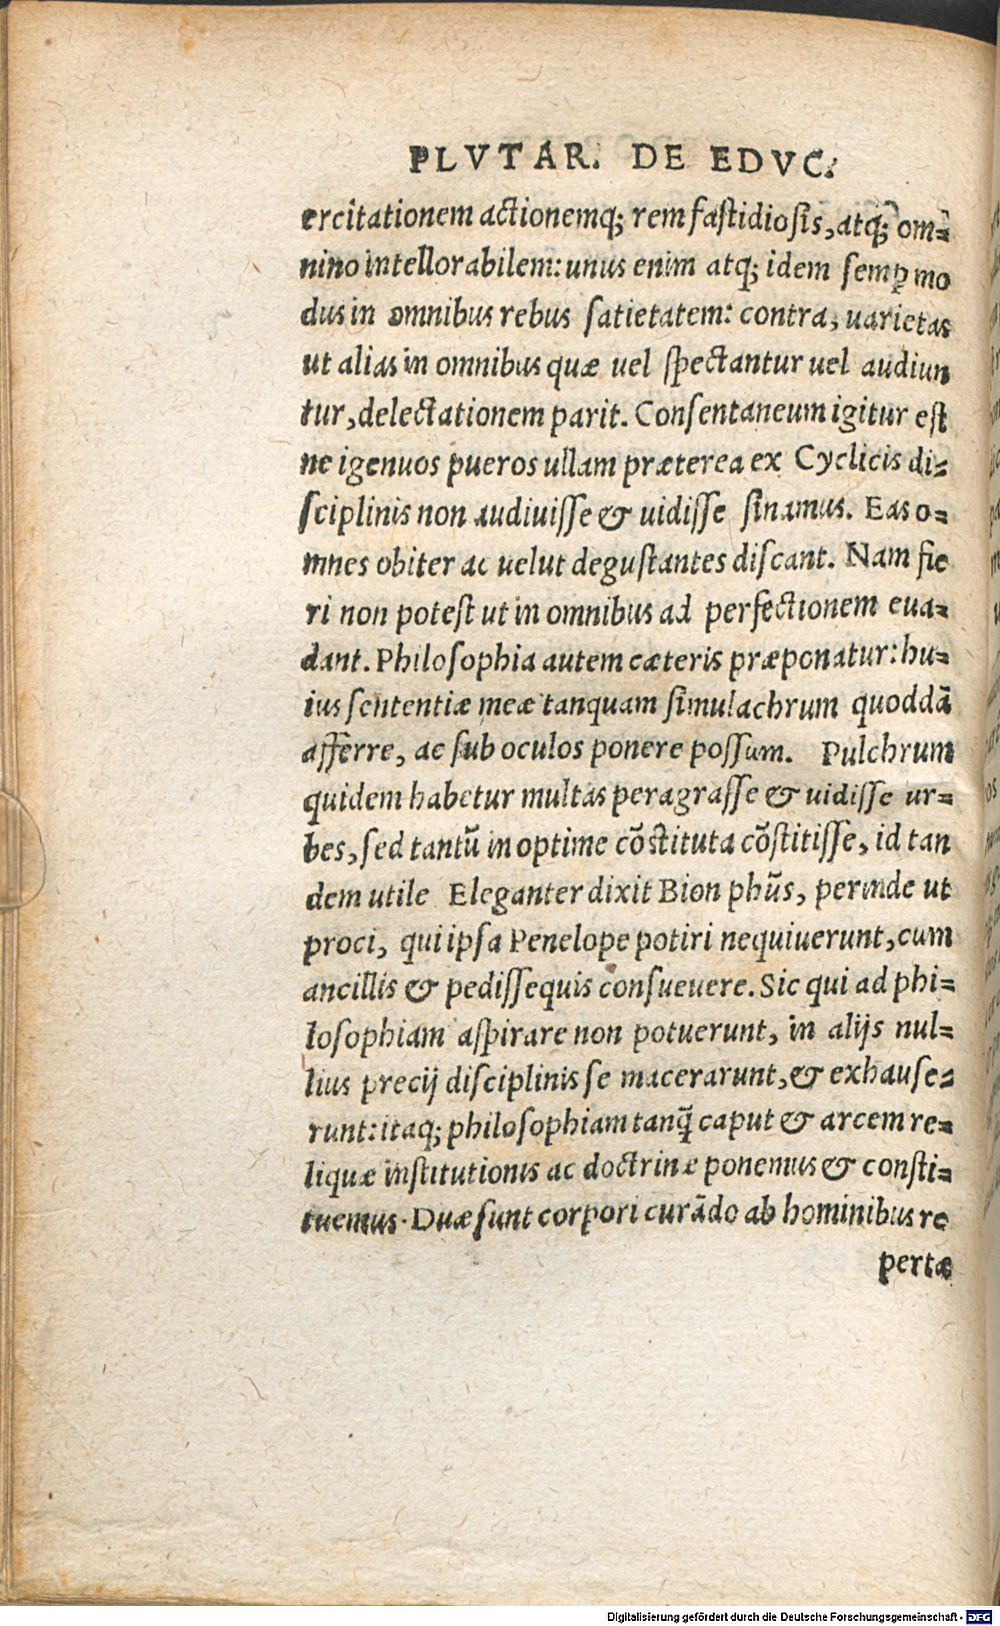 PLVTAR. DE EDVC.
ercitationem actionemq; rem fastidiosis, atq; om-
nino intellorabilem: unus enim atq; idem semꝑ mo
dus in omnibus rebus satietatem: contra, uarietas
ut alias in omnibus quæ uel spectantur uel audiun
tur, delectationem parit. Consentaneum igitur est
ne igenuos pueros ullam præterea ex Cyclicis di-
sciplinis non audiuisse & uidisse sinamus. Eas o-
mnes obiter ac uelut degustantes discant. Nam fie
ri non potest ut in omnibus ad perfectionem eua-
dant. Philosophia autem cæteris præponatur: hu-
ius sententiæ meæ tanquam simulachrum quoddã
afferre, ac sub oculos ponere possum. Pulchrum
quidem habetur multas peragrasse & uidisse ur-
bes, sed tantũ in optime cõstituta cõstitisse, id tan
dem utile Eleganter dixit Bion phũs, perinde ut
proci, qui ipsa Penelope potiri nequiuerunt, cum
ancillis & pedissequis consueuere. Sic qui ad phi-
losophiam aspirare non potuerunt, in alijs nul-
lius precij disciplinis se macerarunt, & exhause-
runt: itaq; philosophiam tanq̃ caput & arcem re-
liquæ institutionis ac doctrinæ ponemus & consti-
tuemus. Duæ sunt corpori curãdo ab hominibus re
pertæ
Digitalisierung gefördert durch die Deutsche Forschungsgemeinschaft - DFG